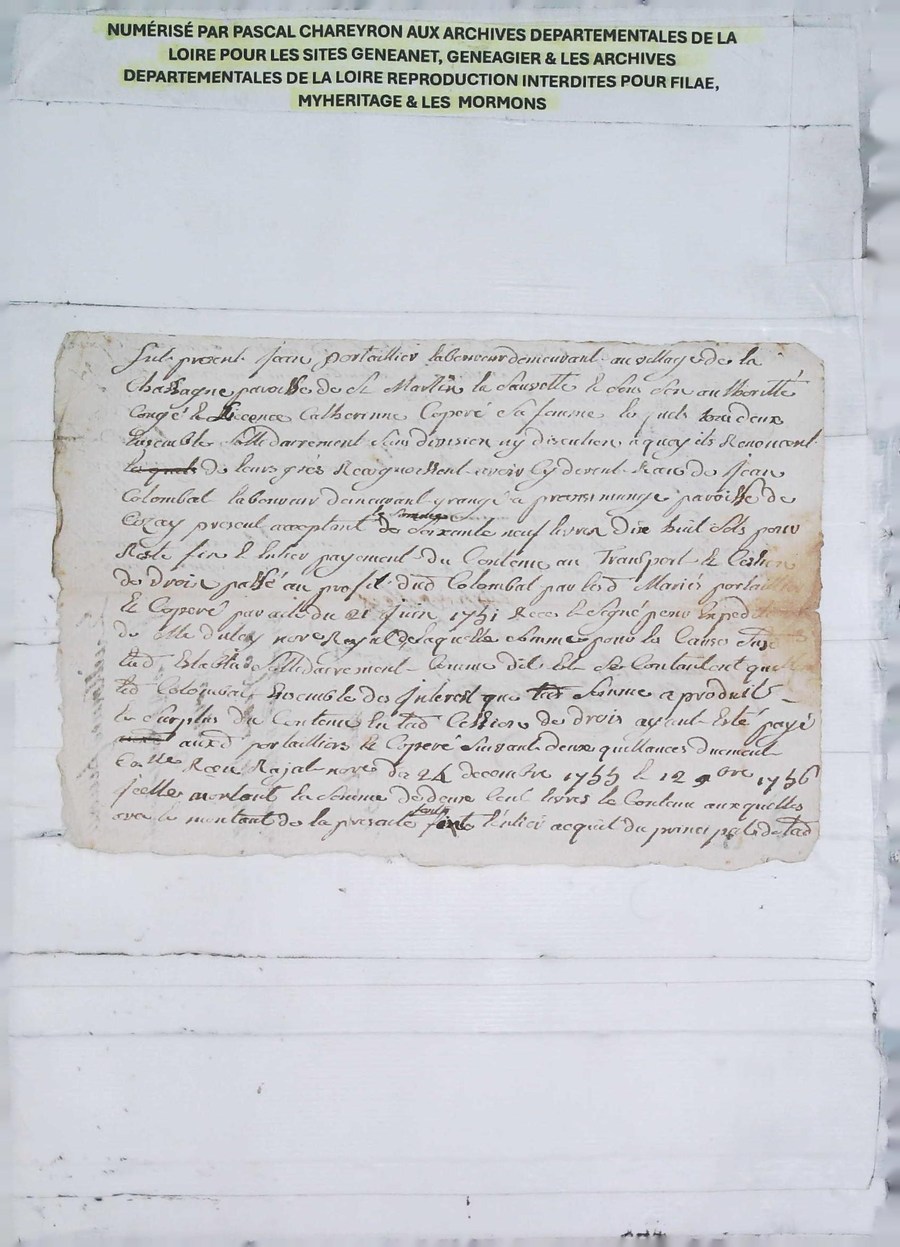 NUMÉRISÉ PAR PASCAL CHAREYRON AUX ARCHIVES DEPARTEMENTALES DE LA
LOIRE POUR LES SITES GENEANET, GENEAGIER & LES ARCHIVES
DEPARTEMENTALES DE LA LOIRE REPRODUCTION INTERDITES POUR FILAE,
MYHERITAGE & LES MORMONS
fut present Jean portaillier laboureur demeurant au village de la
Chassagne paroisse de St Martin la Sauvetté & sous son authorité
Congé & Licence Catherinne Coperé sa femme les quels tous deux
Ensemble sollidairement sans division ny discution a quoy ils Renoncent
les quels de leurs grés Recognoissent avoir cy devant Receu de Jean
Colombat laboureur demeurant paroisse de
Cezay present acceptant la somme de soixente neuf livres dix huit sols pour
Reste fin & Entier payement du Contenu au Transport & Cession
de droits passé au profit dud Colombat par lesd Mariés
& Coperé par acte du 21 Juin 1751 Receu & signé pour Expedition
de laquelle somme pour les Causes
sollidairement Comme dit Est se Contentent
led Colombat Ensemble des Interest que lad somme a produits
le surplus du Contenu en lad Cession de droits ayant Esté payé
auxd portailliers & Coperé suivant deux quittances duement
Rajat nore des 24 decembre 1755 & 12 9bre 1756
la somme de deux Cent livres le Contenu auxquelles
avec le montant de la presente font l'entier acquit du principal de lad